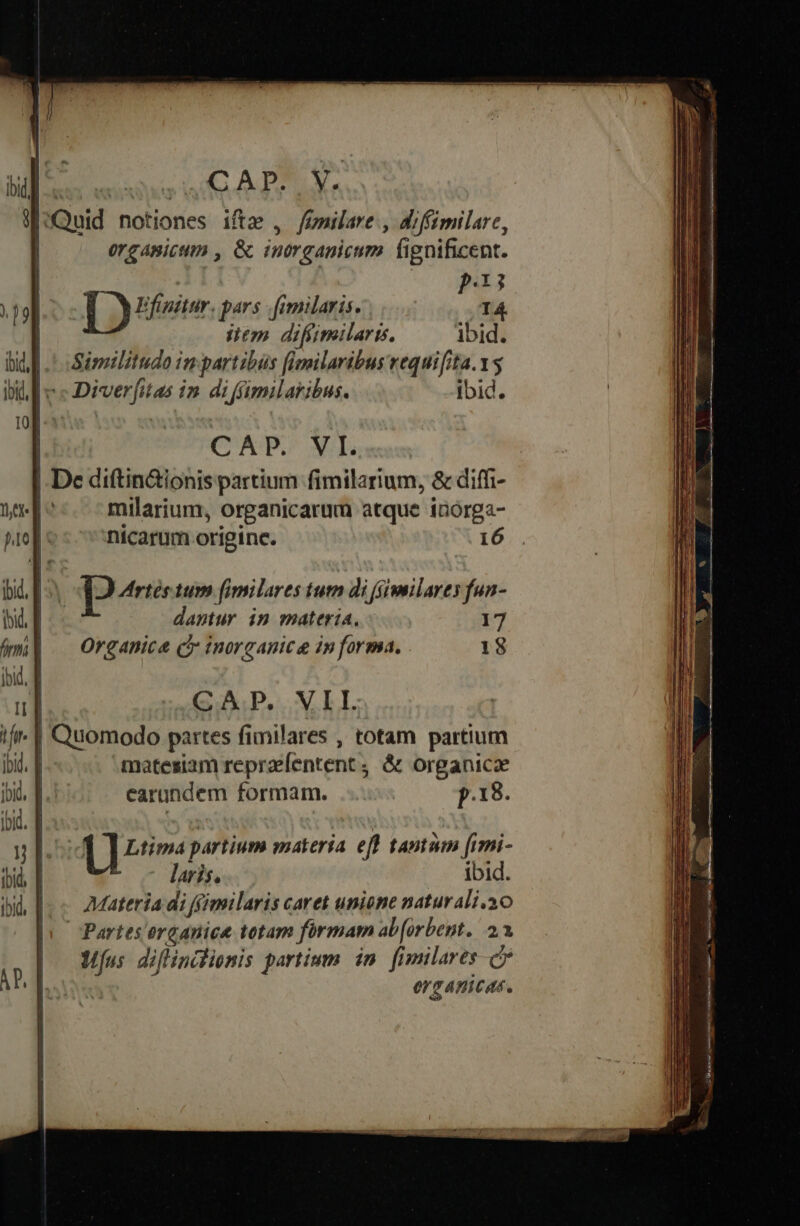 CAP. V.
Quid notiones iſtæ, ſimilare, diſſimilare,
organicum, & inorganicum ſignificent.
p.13
DEfinitur. pars ſimilaris. 14
item diſſimilaris. ibid.
Similitudo in partibus ſimilaribus requiſita. 15
Diverſitas in diſſimilaribus. ibid.
CAP. VI.
De diſtinctionis partium ſimilarium, & diſſi-
milarium, organicarum atque inorga-
nicarum origine. 16
PArtes tum ſimilares tum diſſimilares fun-
dantur in materia. 17
Organicæ & inorganicæ in forma. 18
CAP. VII.
Quomodo partes ſimilares, totam partium
materiam repræſentent, & organicæ
earundem formam. p.18.
ULtima partium materia eſt tantùm ſimi-
laris. ibid.
Materia diſſimilaris caret unione naturali. 20
Partes organicæ totam formam abſorbent. 21
Uſus diſtinctionis partium in ſimilares &
organicas.
ibid.
ibid.
ibid.
10
p.10
ibid.
ibid.
firmi
ibid.
11
ibid.
ibid.
ibid.
13
ibid.
ibid.
AP.